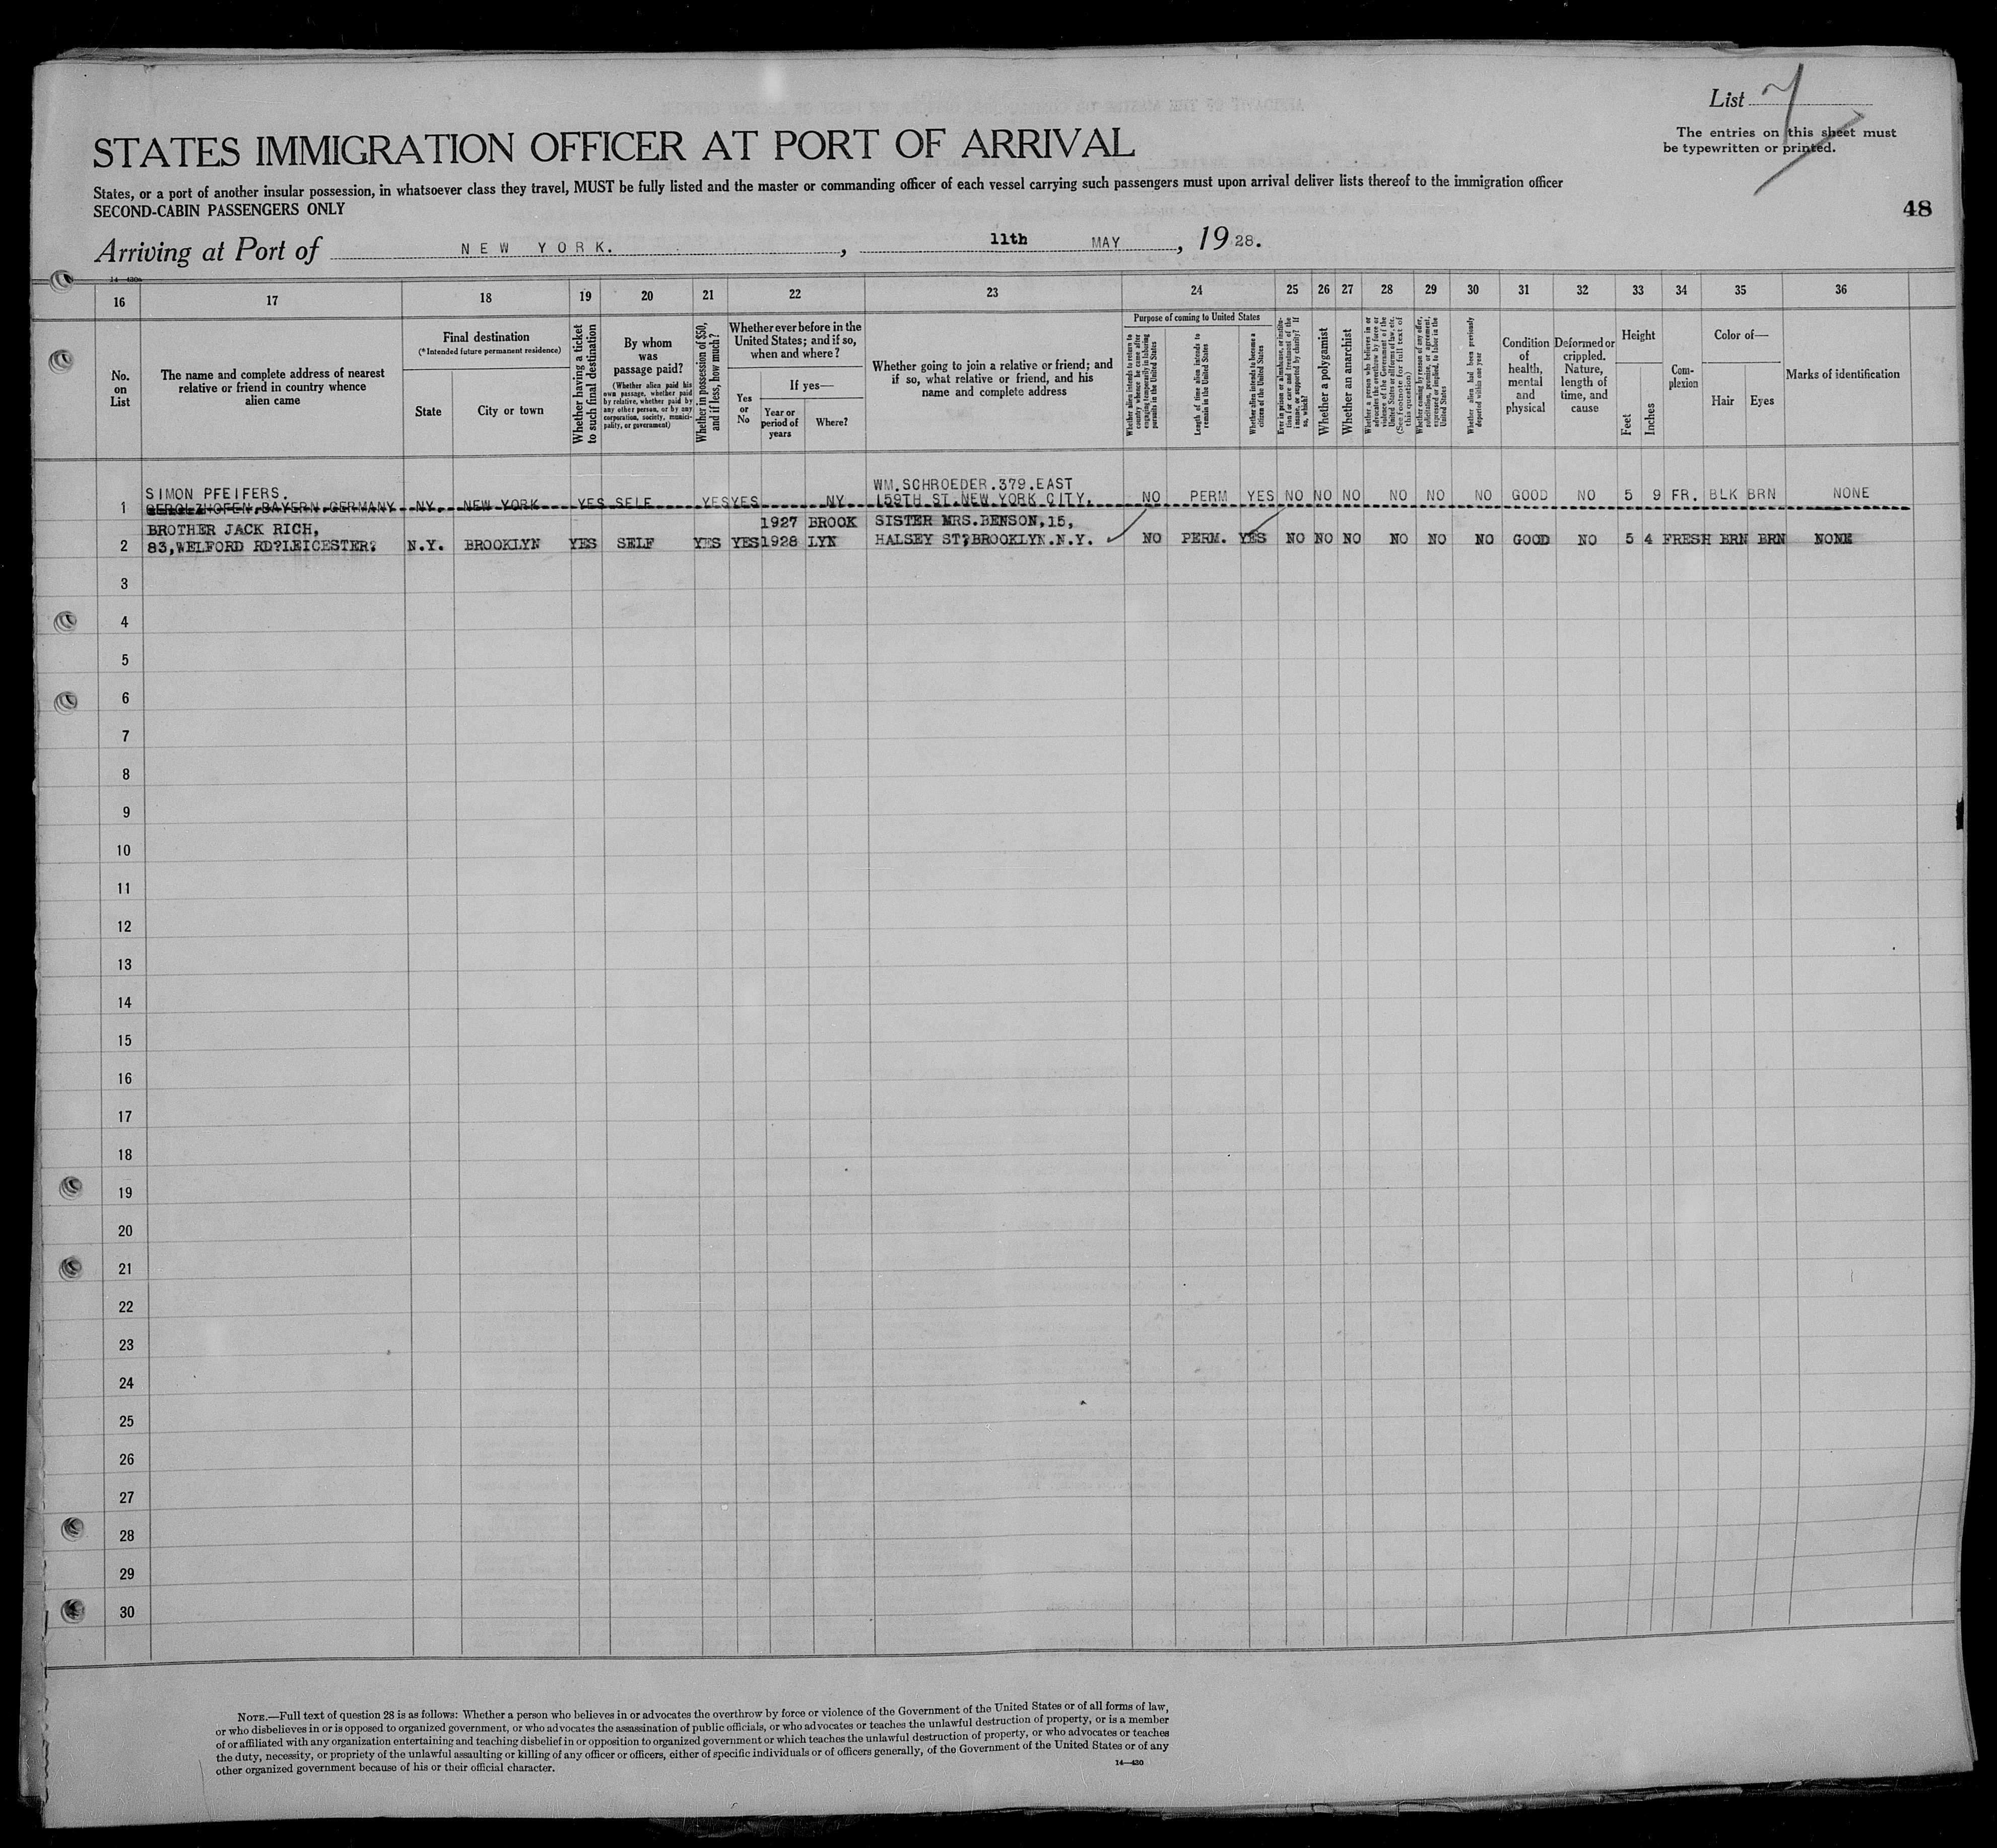 List 7
The entries on this sheet must
be typewritten or printed.
STATES IMMIGRATION OFFICER AT PORT OF ARRIVAL
States, or a port of another insular possession, in whatsoever class they travel, MUST be fully listed and the master or commanding officer of each vessel carrying such passengers must upon arrival deliver lists thereof to the immigration officer
SECOND-CABIN PASSENGERS ONLY
48
Arriving at Port of NEW YORK. , 11th MAY , 19 28.
14-430a
16 17 18 19 20 21 22 23 24 25 26 27 28 29 30 31 32 33 34 35 36
No. on List
The name and complete address of nearest relative or friend in country whence alien came
Final destination
(*Intended future permanent residence)
State
City or town
Whether having a ticket to such final destination
By whom was passage paid?
(Whether alien paid his own passage, whether paid by relative, whether paid by any other person, or by any corporation, society, municipality, or government)
Whether in possession of $50, and if less, how much?
Whether ever before in the United States; and if so, when and where?
Yes or No
If yes—
Year or period of years
Where?
Whether going to join a relative or friend; and if so, what relative or friend, and his name and complete address
Purpose of coming to United States
Whether alien intends to return to country whence he came after engaging temporarily in laboring pursuits in the United States
Length of time alien intends to remain in the United States
Whether alien intends to become a citizen of the United States
Ever in prison or almshouse, or institution for care and treatment of the insane, or supported by charity? If so, which?
Whether a polygamist
Whether an anarchist
Whether a person who believes in or advocates the overthrow by force or violence of the Government of the United States or all forms of law, etc. (See footnote for full text of this question)
Whether coming by reason of any offer, solicitation, promise, or agreement, expressed or implied, to labor in the United States
Whether alien had been previously deported within one year
Condition of health, mental and physical
Deformed or crippled. Nature, length of time, and cause
Height
Feet
Inches
Complexion
Color of—
Hair
Eyes
Marks of identification
SIMON PFEIFERS. WM.SCHROEDER.379.EAST
1 GEROLZHOFEN,BAYERN,GERMANY NY. NEW YORK YES SELF YES YES NY. 159TH ST.NEW YORK CITY. NO PERM YES NO NO NO NO NO NO GOOD NO 5 9 FR. BLK BRN NONE
BROTHER JACK RICH, 1927 BROOK SISTER MRS.BENSON,15,
2 83,WELFORD RD?LEICESTER? N.Y. BROOKLYN YES SELF YES YES 1928 LYN HALSEY ST?BROOKLYN.N.Y. NO PERM. YES NO NO NO NO NO NO GOOD NO 5 4 FRESH BRN BRN NONE
3
4
5
6
7
8
9
10
11
12
13
14
15
16
17
18
19
20
21
22
23
24
25
26
27
28
29
30
NOTE.—Full text of question 28 is as follows: Whether a person who believes in or advocates the overthrow by force or violence of the Government of the United States or of all forms of law,
or who disbelieves in or is opposed to organized government, or who advocates the assassination of public officials, or who advocates or teaches the unlawful destruction of property, or is a member
of or affiliated with any organization entertaining and teaching disbelief in or opposition to organized government or which teaches the unlawful destruction of property, or who advocates or teaches
the duty, necessity, or propriety of the unlawful assaulting or killing of any officer or officers, either of specific individuals or of officers generally, of the Government of the United States or of any
other organized government because of his or their official character.
14—430